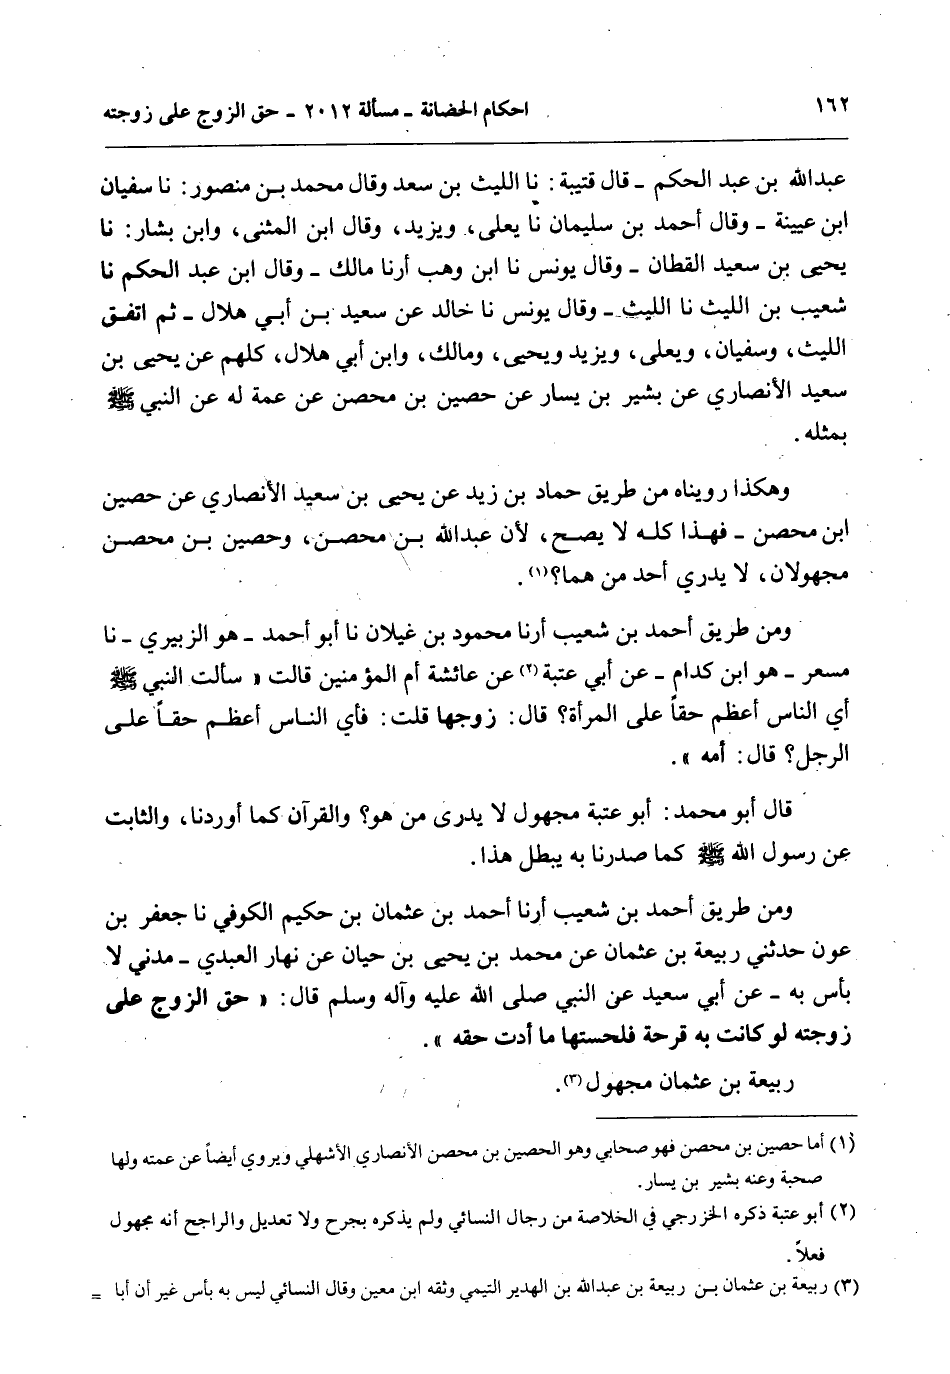 ١٦٢ احكام الحضانة ـ مسألة ٢٠١٢ ـ حق الزوج على زوجته
عبدالله بن عبد الحكم ـ قال قتيبة: نا الليث بن سعد وقال محمد بـن منصور: نا سفيان
ابن عيينة ـ وقال أحمد بن سليمان نا يعلى، ويزيد، وقال ابن المثنى، وابن بشار: نا
يحيى بن سعيد القطان ـ وقال يونس نا ابن وهب أرنا مالك ـ وقال ابن عبد الحكم نا
شعيب بن الليث نا الليث ـ وقال يونس نا خالد عن سعيد بـن أبـي هلال ـ ثم اتفـق
الليث، وسفيان، ويعلى، ويزيد ويحيى، ومالك، وابن أبي هلال، كلهم عن يحيى بن
سعيد الأنصاري عن بشير بن يسار عن حصين بن محصن عن عمة له عن النبي ﷺ
بمثله.
وهكذا رويناه من طريق حماد بن زيد عن يحيى بن سعيد الأنصاري عن حصين
ابن محصن ـ فهـذا كلـه لا يصـح، لأن عبدالله بـن محصـن، وحصين بـن محصـن
مجهولان، لا يدري أحد من هما؟(١).
ومن طريق أحمد بن شعيب أرنا محمود بن غيلان نا أبو أحمد ـ هو الزبيري ـ نا
مسعر ـ هو ابن كدام ـ عن أبي عتبة(٢) عن عائشة أم المؤمنين قالت « سألت النبي ﷺ
أي الناس أعظم حقاً على المرأة؟ قال: زوجها قلت: فأي النـاس أعظـم حقـاً علـى
الرجل؟ قال: أمه ».
قال أبو محمد: أبو عتبة مجهول لا يدرى من هو؟ والقرآن كما أوردنا، والثابت
عن رسول الله ﷺ كما صدرنا به يبطل هذا.
ومن طريق أحمد بن شعيب أرنا أحمد بن عثمان بن حكيم الكوفي نا جعفر بن
عون حدثني ربيعة بن عثمان عن محمد بن يحيى بن حيان عن نهار العبدي ـ مدني لا
بأس به ـ عن أبي سعيد عن النبي صلى الله عليه وآله وسلم قال: « حق الزوج على
زوجته لو كانت به قرحة فلحستها ما أدت حقه ».
ربيعة بن عثمان مجهول(٣).
(١) أما حصين بن محصن فهو صحابي وهو الحصين بن محصن الأنصاري الأشهلي ويروي أيضاً عن عمته ولها
صحبة وعنه بشير بن يسار.
(٢) أبو عتبة ذكره الخزرجي في الخلاصة من رجال النسائي ولم يذكره بجرح ولا تعديل والراجح أنه مجهول
فعلاً.
(٣) ربيعة بن عثمان بـن ربيعة بن عبدالله بن الهدير التيمي وثقه ابن معين وقال النسائي ليس به بأس غير أن أبا =